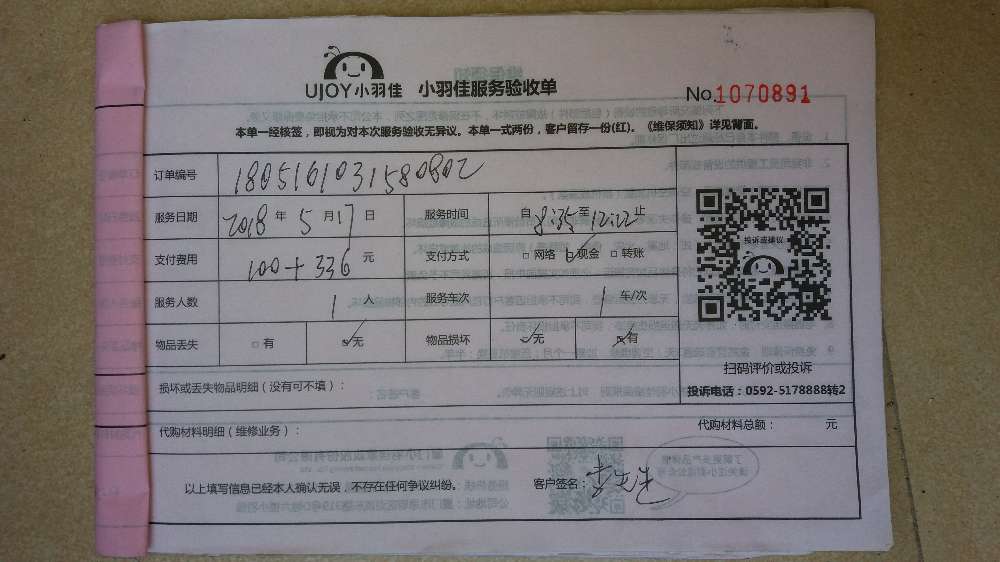 UJOY小羽佳 小羽佳服务验收单 No.1070891
本单一经核签，即视为对本次服务验收无异议。本单一式两份，客户留存一份(红)。《维保须知》详见背面。
订单编号 1805161031580802
服务日期 2018年5月17日 服务时间 自8:35至12:22止
支付费用 100+336元 支付方式 □网络 □现金 □转账
服务人数 1人 服务车次 1车/次
物品丢失 □有 □无 物品损坏 □无 □有
投诉或建议
扫码评价或投诉
损坏或丢失物品明细（没有可不填）：
投诉电话：0592-5178888转2
代购材料明细（维修业务）： 代购材料总额： 元
以上填写信息已经本人确认无误，不存在任何争议纠纷。 客户签名：李先生